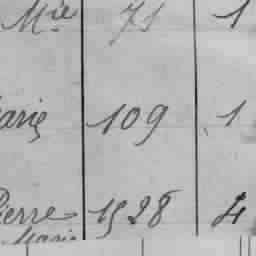 Mie 71 1
arie 109 1
Pierre 1528 4
Marie